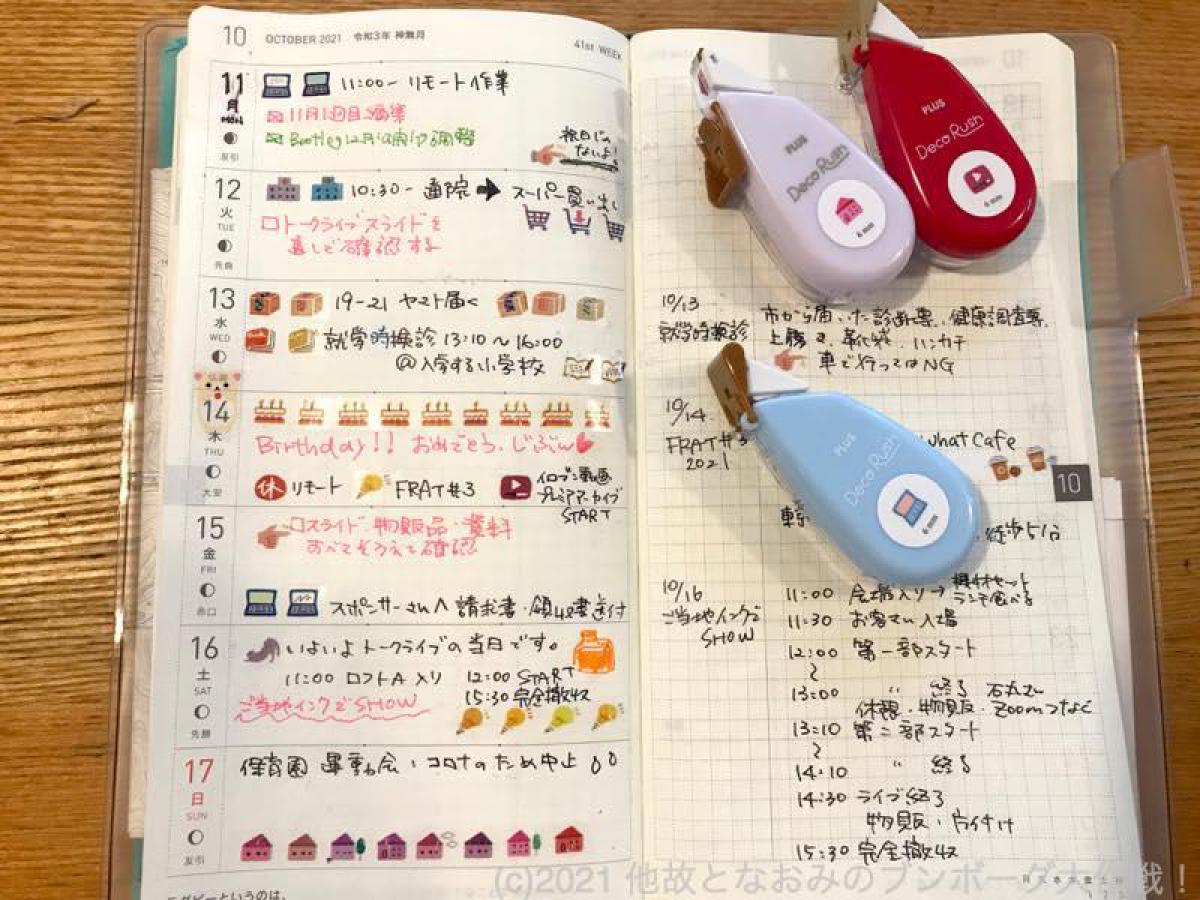 10 OCTOBER 2021 令和3年 神無月
41st WEEK
11
月
友引
11:00- リモート作業
11月1週目編集
祝日じゃ
ないよ!
12
火
TUE
先負
10:30- 通院 → スーパー買い出し
□トークライブスライドを
通しで確認する
13
水
WED
19-21 ヤマト届く
就学時検診 13:10~16:00
@入学する小学校
14
木
THU
大安
Birthday!! おめでとう、じぶん♥
休 リモート FRAT#3
プレミアアーカイブ
START
15
金
FRI
赤口
□スライド 物販品・資料
すべてそろえて確認
スポンサーさんへ 請求書・領収書送付
16
土
SAT
先勝
いよいよトークライブの当日です。
11:00 ロフトA入り 12:00 START
15:30 完全撤収
ご当地インクでSHOW
17
日
SUN
友引
保育園 運動会:コロナのため中止
PLUS
Deco Rush
6 mm
PLUS
Deco Rush
6 mm
10/13
就学時検診
市から届いた診断票、健康調査票
上履き、靴袋、ハンカチ
車で行ってはNG
10/14
FRAT#3
2021
What Cafe
PLUS
Deco Rush
6 mm
10
徒歩5分
10/16
ご当地インクで
SHOW
11:00 会場入り→
ランチ食べる
11:30 お客さん入場
12:00 第一部スタート
13:00 〃 終了
休憩・物販・Zoomつなぐ
13:10 第二部スタート
14:10 〃 終了
14:30 ライブ終了
物販・片付け
15:30 完全撤収
(c)2021 他故となおみのブンボーグ大作戦!